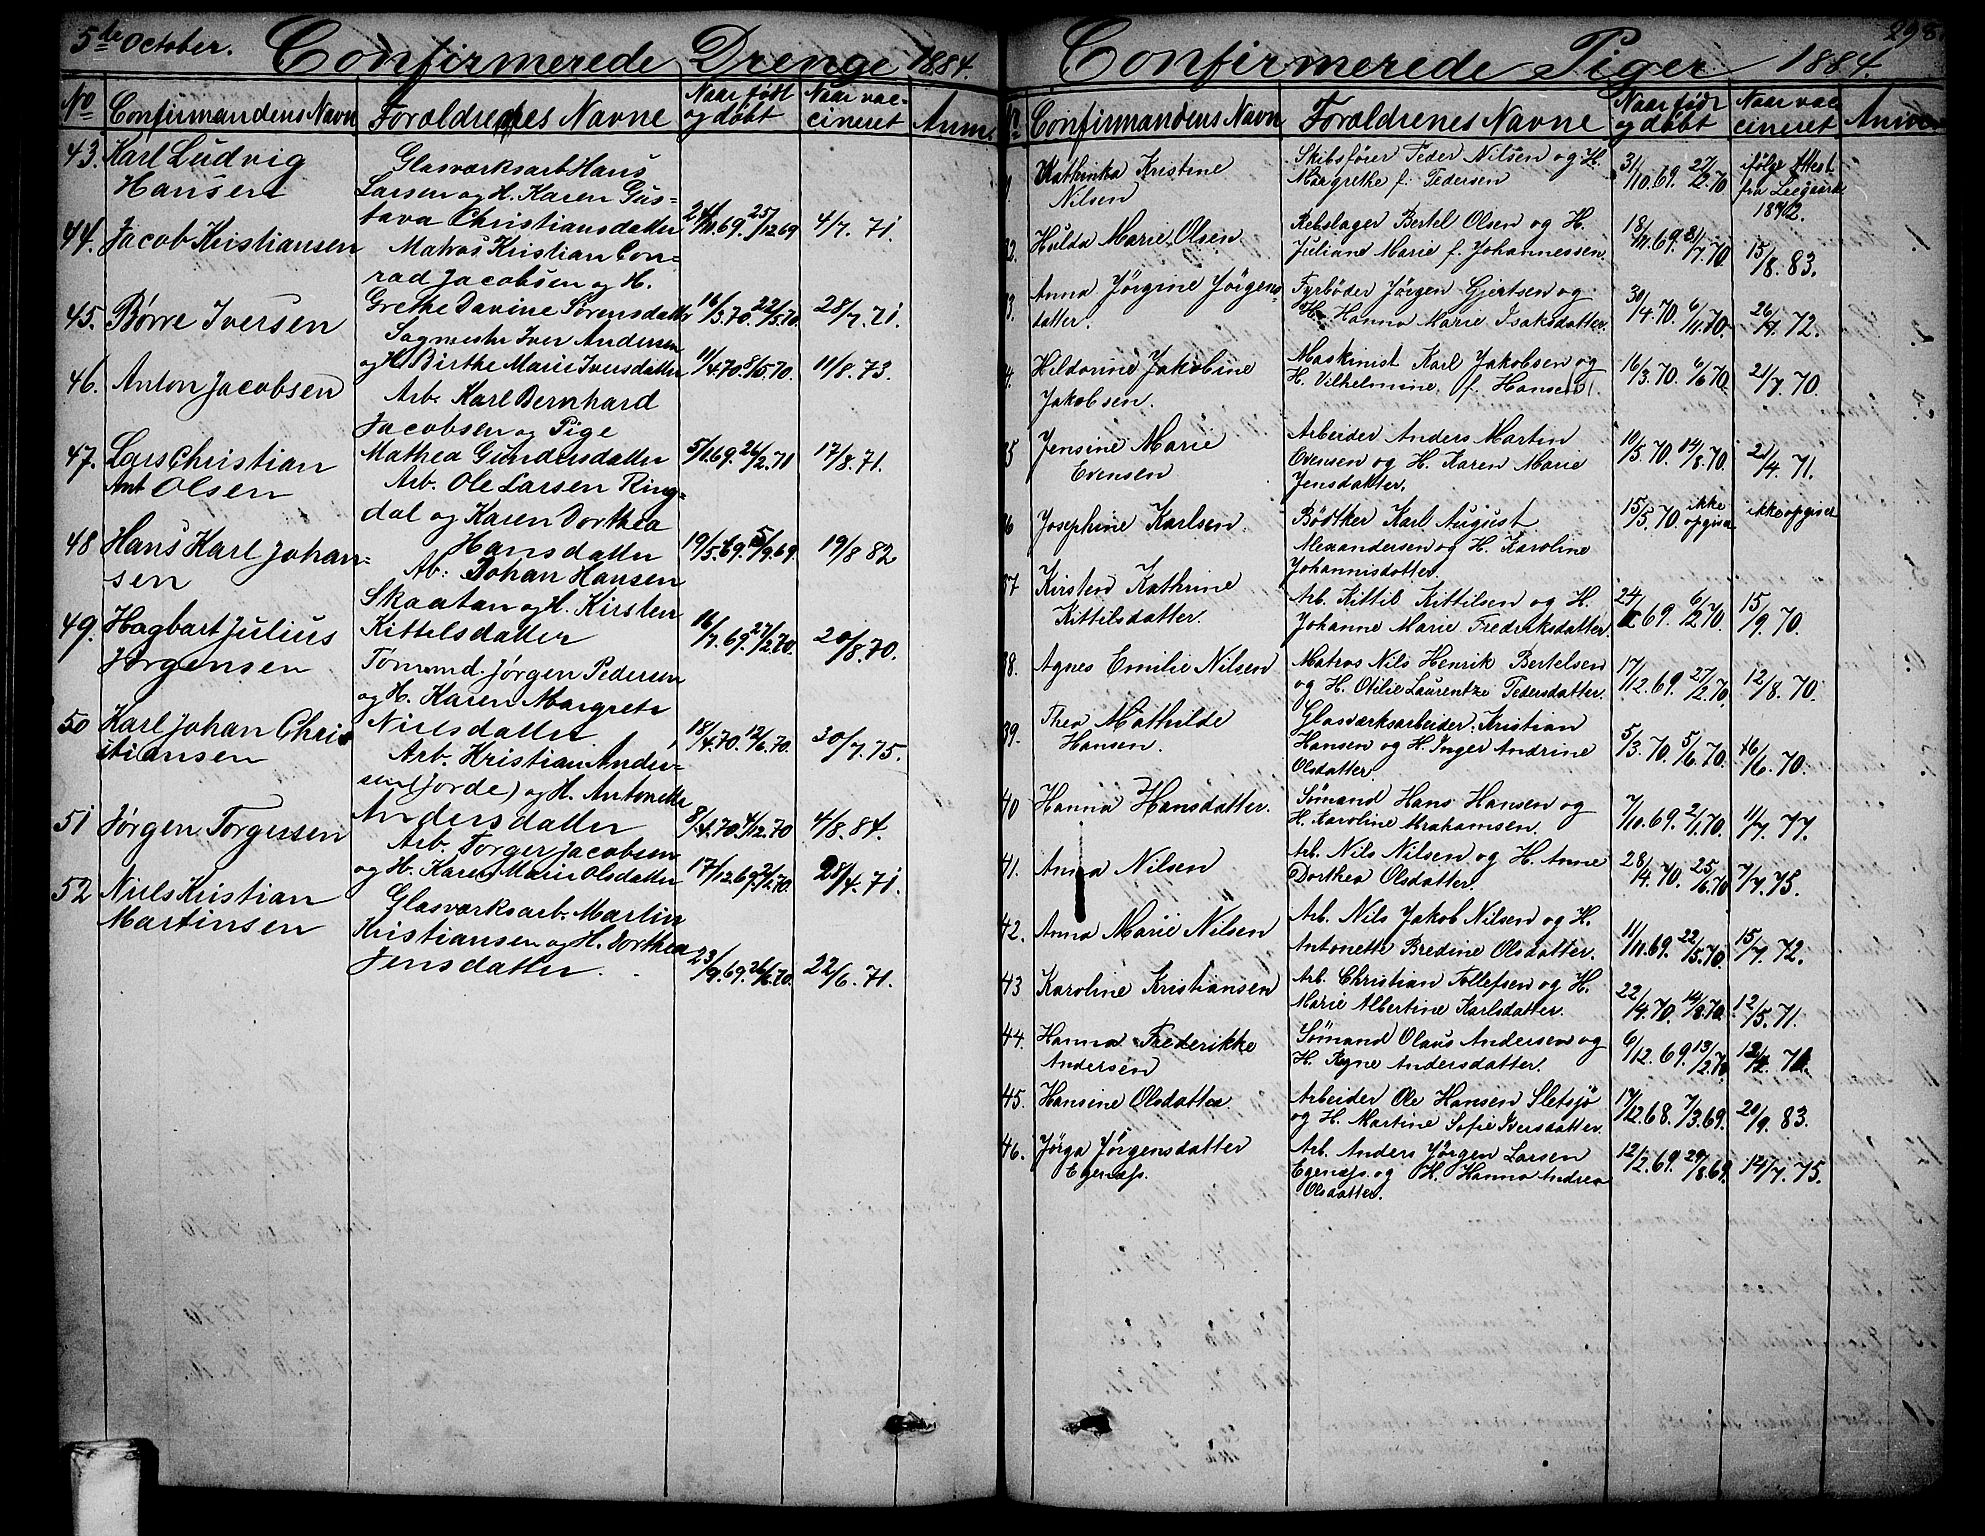 5de October. Confirmerede Drenge 1884.
No Confirmandens Navn Forældrenes Navne Naar født og døbt Naar vaccineret Anm.
43. Karl Ludvig
Hansen
Glasværksarb Hans
Larsen og H. Karen Gus=
tava Christiansdatter 24/11 69. 25/12 69 4/7. 71.
44. Jacob Kristiansen
Matros Kristian Con=
rad Jacobsen og H.
Grethe Davine Sørensdatter 16/3.70. 22/5.70. 28/7. 71.
45. Børre Iversen
Sagmester Iver Andersen
og H. Birthe Marie Iversdatter 11/4.70. 8/5.70. 11/8. 73.
46. Anton Jacobsen
Arb. Karl Bernhard
Jacobsen og Pige
Mathea Gundersdatter 5/11.69. 26/2.71 17/8.71.
47. Lars Christian
Ant Olsen
Arb. Ole Larsen Ring=
dal og Karen Dorthea
Hansdatter 19/5.69. 5/9.69. 19/8 82
48 Hans Karl Johan=
sen
Ab: Johan Hansen
Skaatan og H. Kirsten
Kittelsdatter 16/7.69. 27/2.70. 20/8.70.
49. Hagbart Julius
Jørgensen
Tømmd. Jørgen Pedersen
og H. Karen Margrete
Nielsdatter. 18/4.70. 12/6.70. 30/7.75.
50 Karl Johan Chris
itiansen
Arb. Kristian Ander=
sen (Jorde) og H. Antonette
Andersdatter 8/4.70. 4/12.70 4/8. 84.
51 Jørgen Torgersen
Arb. Torger Jacobsen
og H. Karen Marie Olsdatter 17/12 69. 2/2.70. 28/4. 71.
52 Niels Kristian
Martinsen
Glasværksarb. Martin
Kristiansen og H. Dorthea
Jensdatter. 23/9.69. 26/6.70. 22/6. 71.
298.
Confirmerede Piger 1884.
Confirmandens Navn Forældrenes Navne Naar født og døbt Naar vaccineret
Kathinka Kristine
Nilsen
Skibsfører Peder Nilsen og H.
Margrethe f. Pedersen 31/10.69. 27/2.70 ifølge Attest
fra
Hulda Marie Olsen
Rebslager Bertel Olsen og H.
Juliane Marie f. Johannessen. 15/8. 83.
Anna Jörgine Jörgens=
datter.
Fyrböder Jörgen Gjertsen og
H. Hanna Marie Isaksdatter. 30/4.70. 6/11.70. 26/7. 72.
Hildonine Jakobine
Jakobsen.
Maskinist Karl Jakobsen og
H. Vilhelmine f. Hansen. 16/3.70. 6/6 70. 21/7.70.
35 Jensine Marie
Evensen
Arbeider Anders Martin
Evensen og H. Karen Marie
Jensdatter. 10/5.70. 14/8.70. 21/4.71.
36 Josephine Karlsen.
Bödtker Karl August
Alexandersen og H. Karoline
Johannisdatter. 15/5.70. ikke opgivet ikke opgivet
37 Kirsten Kathrine
Kittilsdatter.
Arb. Kittil Kittilsen og H.
Johanne Marie Fredriksdatter. 69. 6/2.70. 15/9.70.
38. Agnes Emilie Nilsen
Matros Nils Henrik Bertelsen
og H. Otilie Laurentze Pedersdatter. 17/12.69. 27/2.70. 12/8.70.
39. Thea Mathilde
Hansen.
Glasværksarbeider Kristian
Hansen og H. Inger Andrine
Olsdatter. 5/3.70. 5/6.70. 16/6.70.
40 Hanna Hansdatter.
Sömand Hans Hansen og
H. Karoline Abrahamsen. 7/10.69. 2/1.70. 11/7.77.
41. Anna Nilsen
Arb. Nils Nilsen og H. Anne
Dorthea Olsdatter. 28/4.70. 25/6.70 7/7.75.
42. Anna Marie Nilsen
Arb. Nils Jakob Nilsen og H.
Antonette Bredine Olsdatter. 11/10.69. 22/5.70. 15/7.72.
43 Karoline Kristiansen
Arb. Christian Tollefsen og H.
Marie Albertine Karlsdatter. 22/4.70. 14/8.70. 12/5.71.
44. Hanna Frederikke
Andersen
Sömand Olaus Andersen og
H. Andersdatter. 6/12.69. 13/2.70
45. Hansine Olsdatter
Arbeider Ole Hansen Sletsjö
og H. Martine Sofie Iversdatter. 17/12.68. 7/3.69. 20/9. 83.
46. Jörga Jörgensdatter
Egenæss.
Arb. Anders Jörgen Larsen
Egenæss og H. Hanna Andrea
Olsdatter. 12/2.69. 29/8.69. 12/7.75.